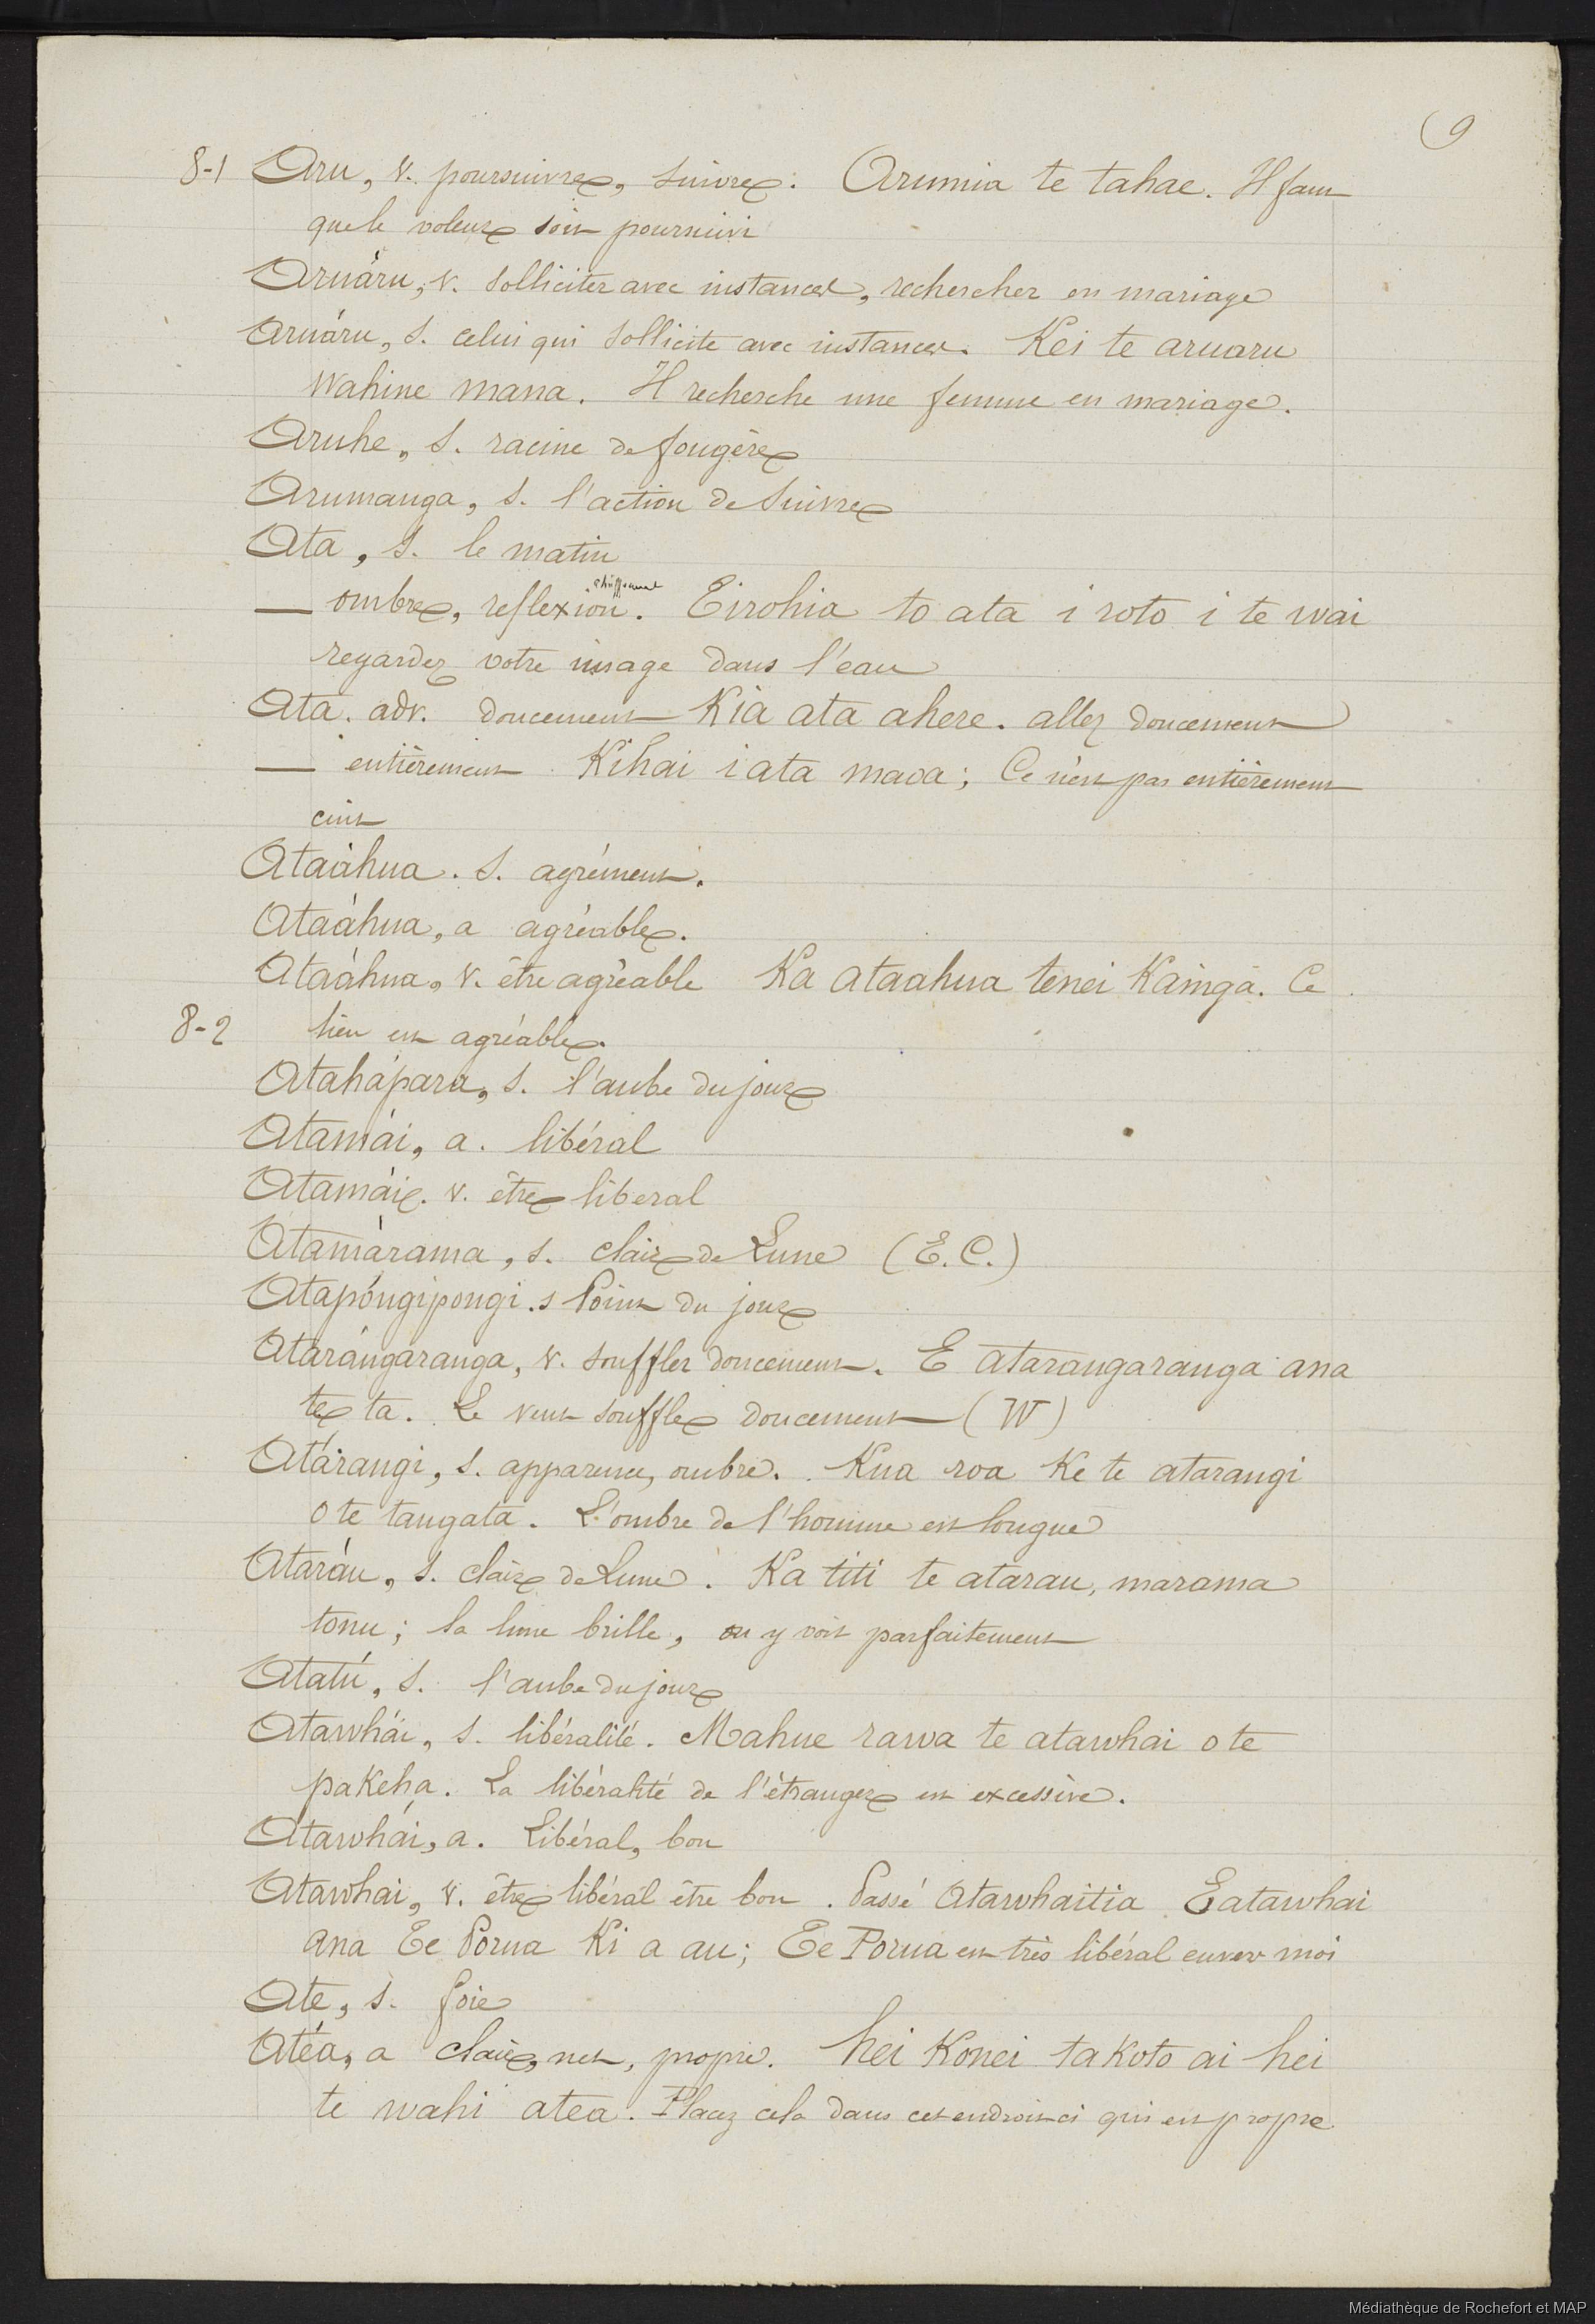 9
8-1 Aru, v. poursuivre, suivre. Arumia te tahae. Il faut
que le voleur soit poursuivi
Aruáru, v. solliciter avec instance, rechercher en mariage
Aruáru, s. celui qui sollicite avec instance. Kei te aruaru
wahine mana. Il recherche une femme en mariage.
Aruhe, s. racine de fougère
Arumanga, s. l'action de suivre
Ata, s. le matin
— ombre, reflexion. Eirohia to ata i roto i te wai
regardez votre image dans l'eau
Ata. adv. doucement Kia ata ahere. allez doucement
— entièrement Kihai i ata maoa; Ce n'est pas entièrement
cuit
Ataáhua. s. agrément.
Ataáhua, a agréable.
Ataáhua, v. être agréable Ka ataahua tenei Kainga. Ce
8-2 lieu est agréable.
Atahápara, s. l'aube du jour
Atamái, a. libéral
Atamái. v. être liberal
Atamárama, s. clair de Lune (E.C.)
Atapóngipongi. s Point du jour
Atarángaranga, v. souffler doucement. E atarangaranga ana
te ta. Le vent souffle doucement (W)
Atárangi, s. apparence, ombre. Kua roa Ke te atarangi
o te tangata. L'ombre de l'homme est longue
Ataráu, s. clair de Lune. Ka titi te atarau, marama
tonu; la lune brille, on y voit parfaitement
Atatú, s. l'aube du jour
Atawhái, s. libéralité. Mahue rawa te atawhai o te
pakeha. La libéralité de l'étranger est excessive.
Atawhái, a. Libéral, bon
Atawhai, v. être libéral être bon. Passé Atawhaitia E atawhai
ana Ee Porua Ki a au; Ee Porua est très libéral envers moi
Ate, s. foie
Atéa, a clair, net, propre. hei Konei takoto ai hei
te wahi atea. Placez cela dans cet endroit-ci qui est propre
Médiathèque de Rochefort et MAP